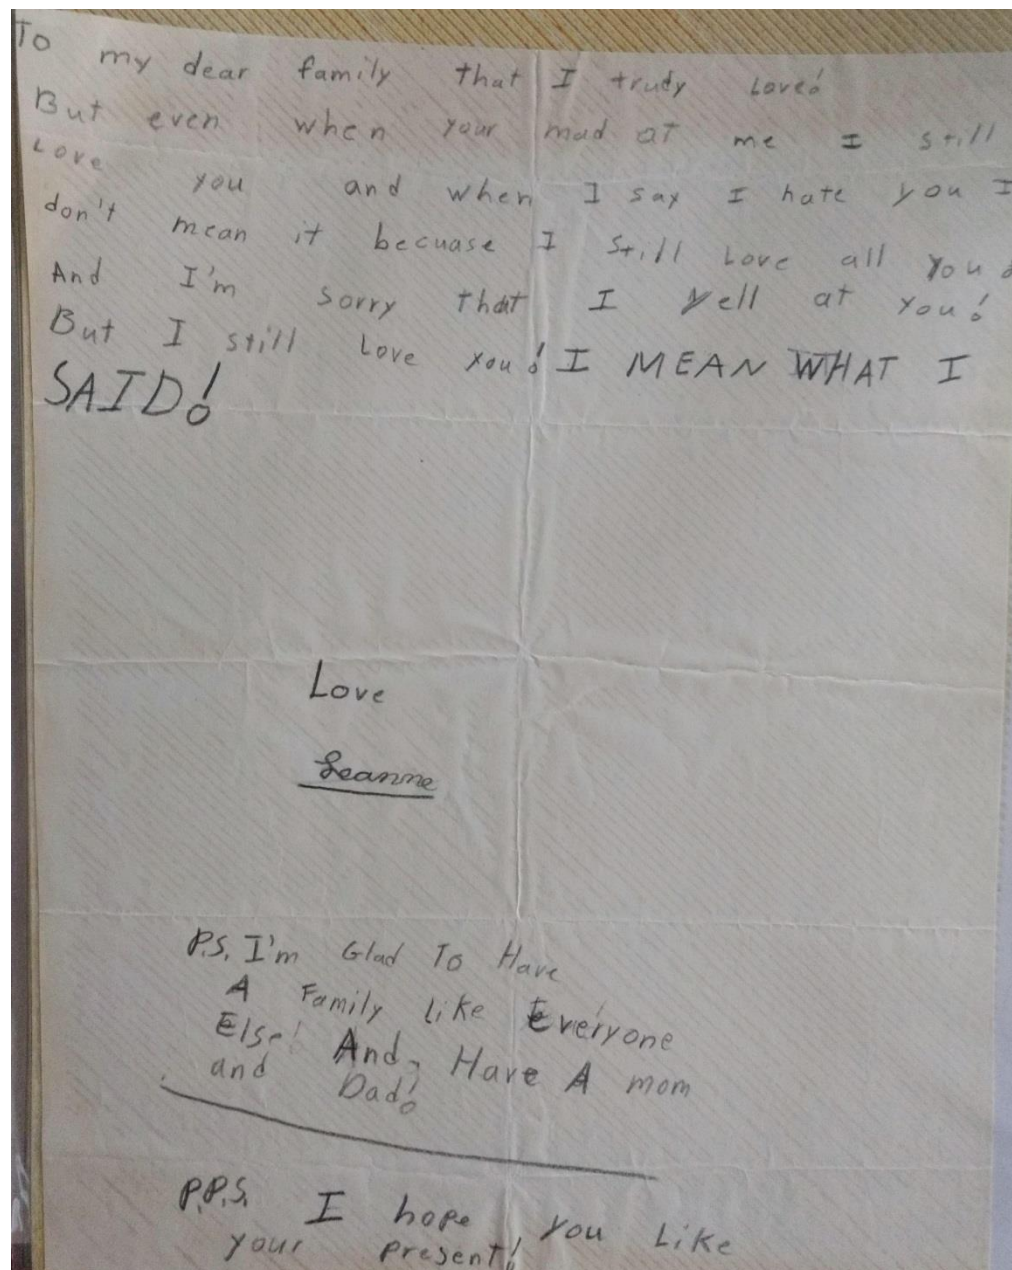 To my dear family that I trudy Love!
But even when your mad at me I still
Love you and when I say I hate you I
don't mean it becuase I still Love all you!
And I'm sorry that I yell at you!
But I still Love you! I MEAN WHAT I
SAID!
Love
Leanne
P.S. I'm Glad To Have
A Family Like Everyone
Else! And, Have A mom
and Dad!
P.P.S. I hope you Like
your present!